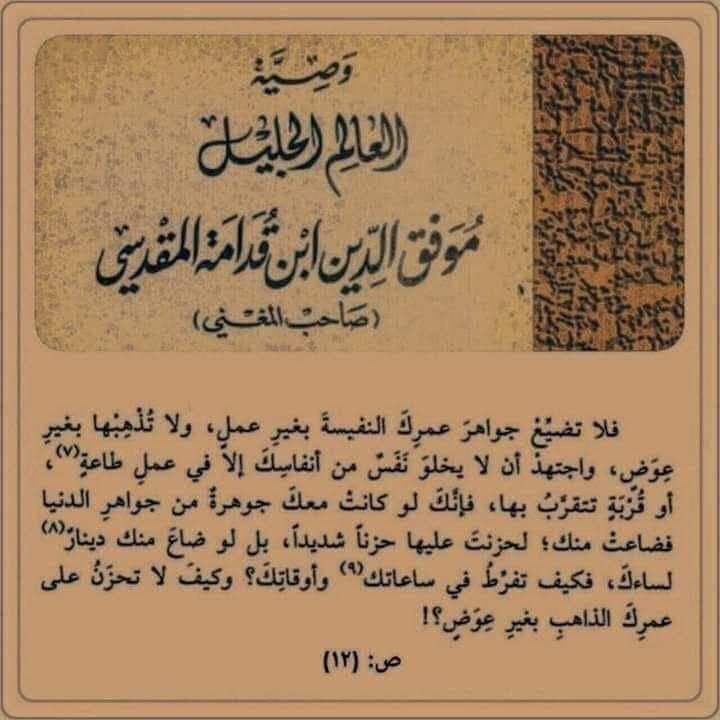 وَصِيَّة
العالم الجليل
مُوَفق الدِّين ابْن قُدَامَة المقْدسِي
(صَاحب المغني)
فلا تضيِّعْ جواهرَ عمرِكَ النفيسةَ بغيرِ عملٍ، ولا تُذْهِبْها بغيرِ
عِوَض، واجتهدْ أن لا يخلوَ نَفَسٌ من أنفاسِكَ إلاّ في عملِ طاعةٍ(٧)،
أو قُرْبَةٍ تتقرَّبُ بها، فإنَّكَ لو كانتْ معكَ جوهرةٌ من جواهرِ الدنيا
فضاعتْ منك؛ لحزنتَ عليها حزناً شديداً، بل لو ضاعَ منك دينارٌ(٨)
لساءكَ، فكيف تفرْطُ في ساعاتك(٩) وأوقاتِكَ؟ وكيفَ لا تحزَنُ على
عمرِكَ الذاهبِ بغيرِ عِوَضٍ؟!
ص: (١٢)